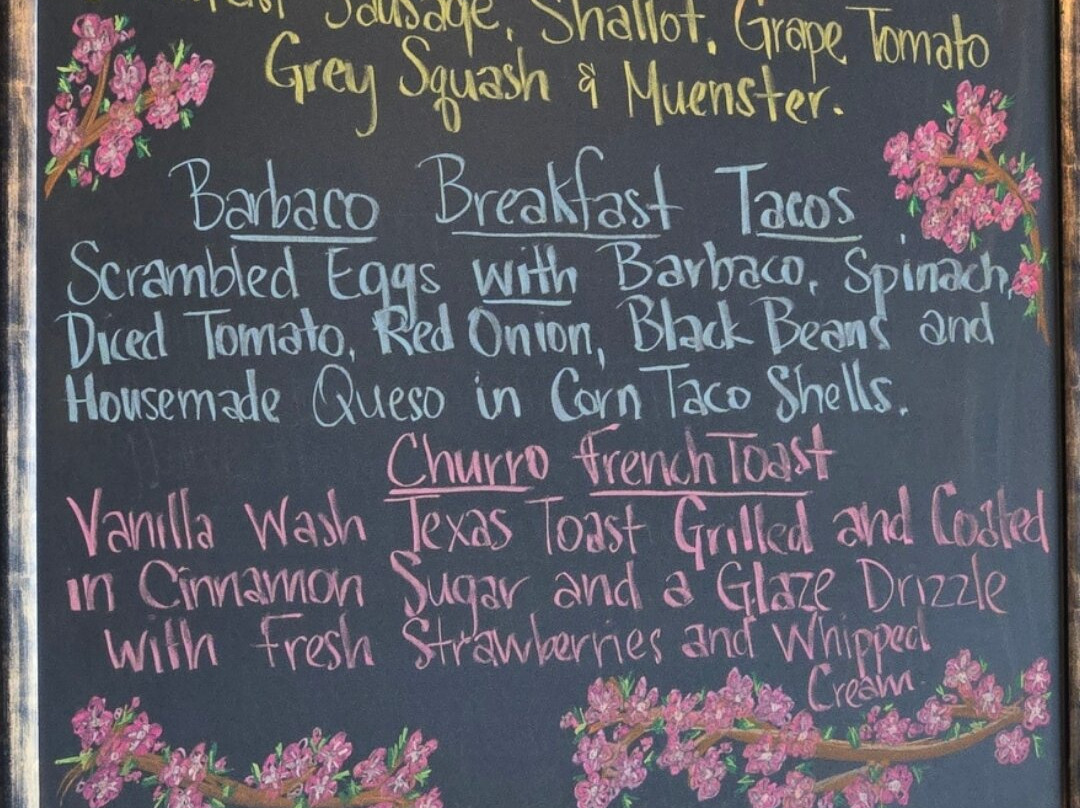 Sausage, Shallot, Grape Tomato
Grey Squash & Muenster.
Barbaco Breakfast Tacos
Scrambled Eggs with Barbaco, Spinach,
Diced Tomato, Red Onion, Black Beans and
Housemade Queso in Corn Taco Shells.
Churro French Toast
Vanilla Wash Texas Toast Grilled and Coated
in Cinnamon Sugar and a Glaze Drizzle
with Fresh Strawberries and Whipped
Cream.